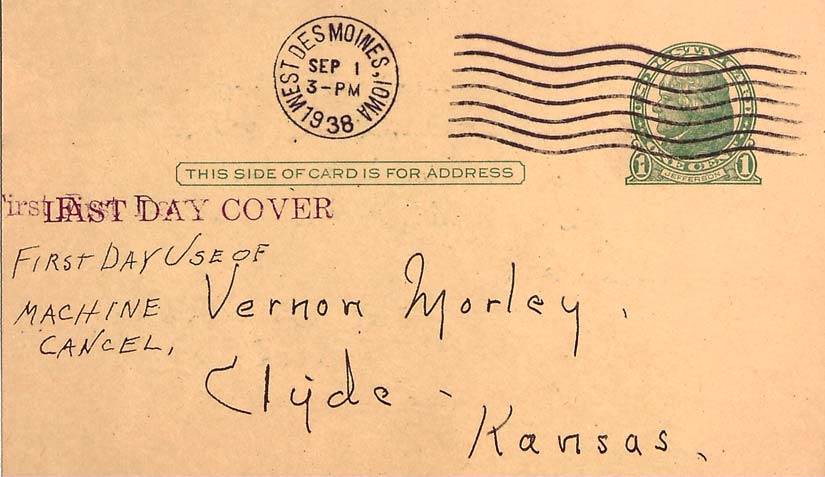 WEST DES MOINES, IOWA
SEP 1
3-PM
1938
1 JEFFERSON 1
THIS SIDE OF CARD IS FOR ADDRESS
First
LAST DAY COVER
FIRST DAY USE OF
MACHINE
CANCEL,
Vernon Morley,
Clyde -
Kansas.